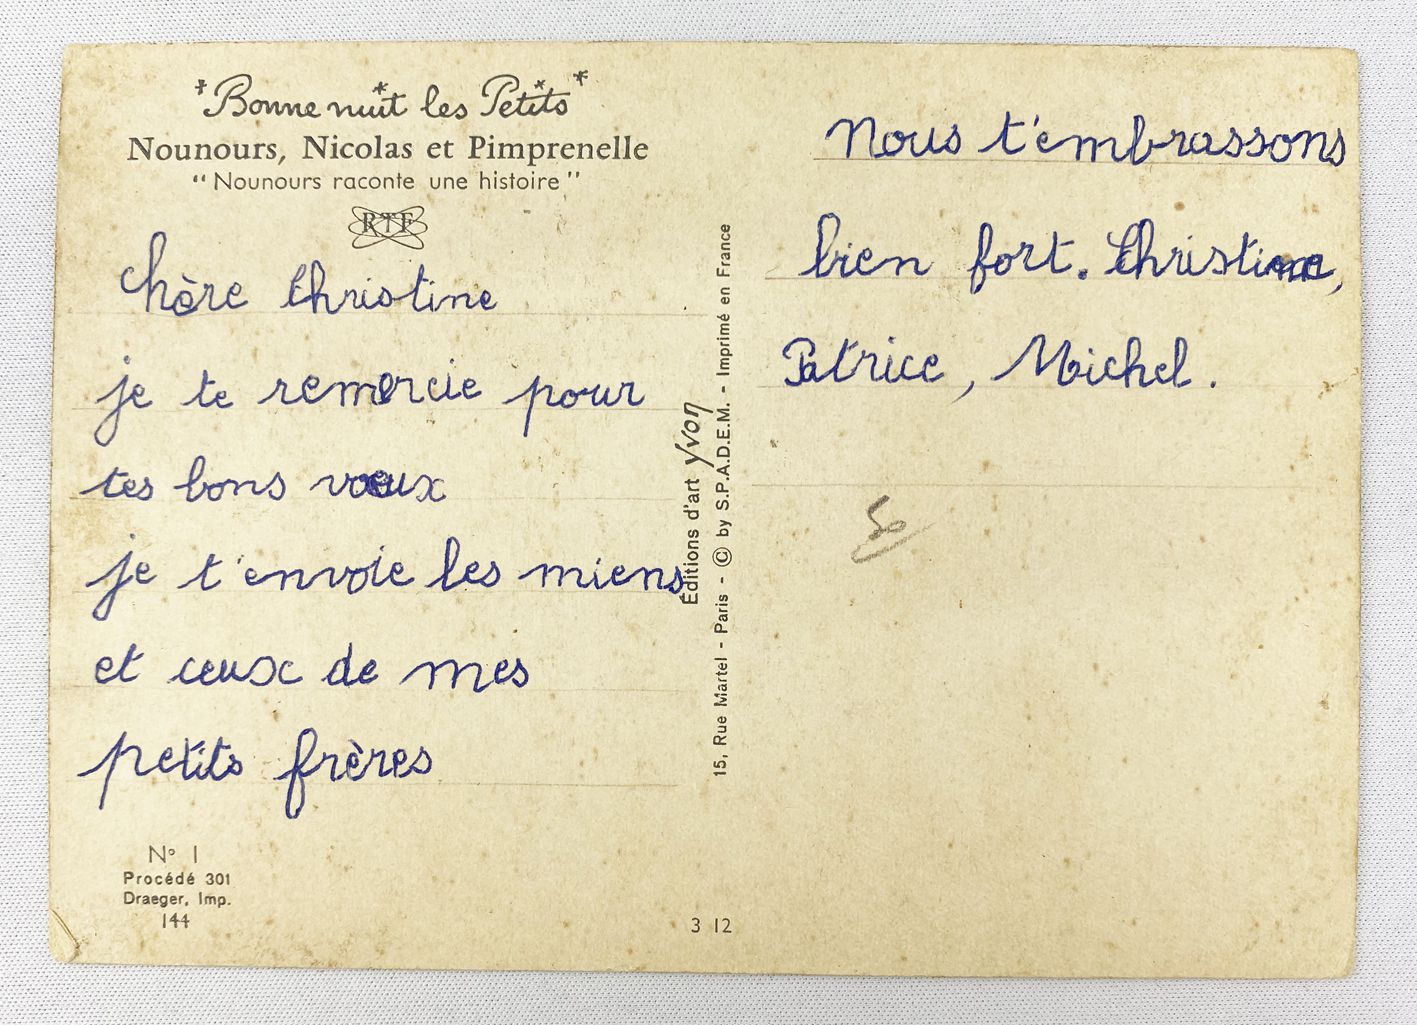 *Bonne nuit les Petits*
Nounours, Nicolas et Pimprenelle
"Nounours raconte une histoire"
RTF
Chère Christine
je te remercie pour
tes bons voeux
je t'envoie les miens
et ceux de mes
petits frères
N° 1
Procédé 301
Draeger, Imp.
144
Éditions d'art yvon
15, Rue Martel - Paris - © by S.P.A.D.E.M. - Imprimé en France
3 12
Nous t'embrassons
bien fort. Christine,
Patrice, Michel.
50